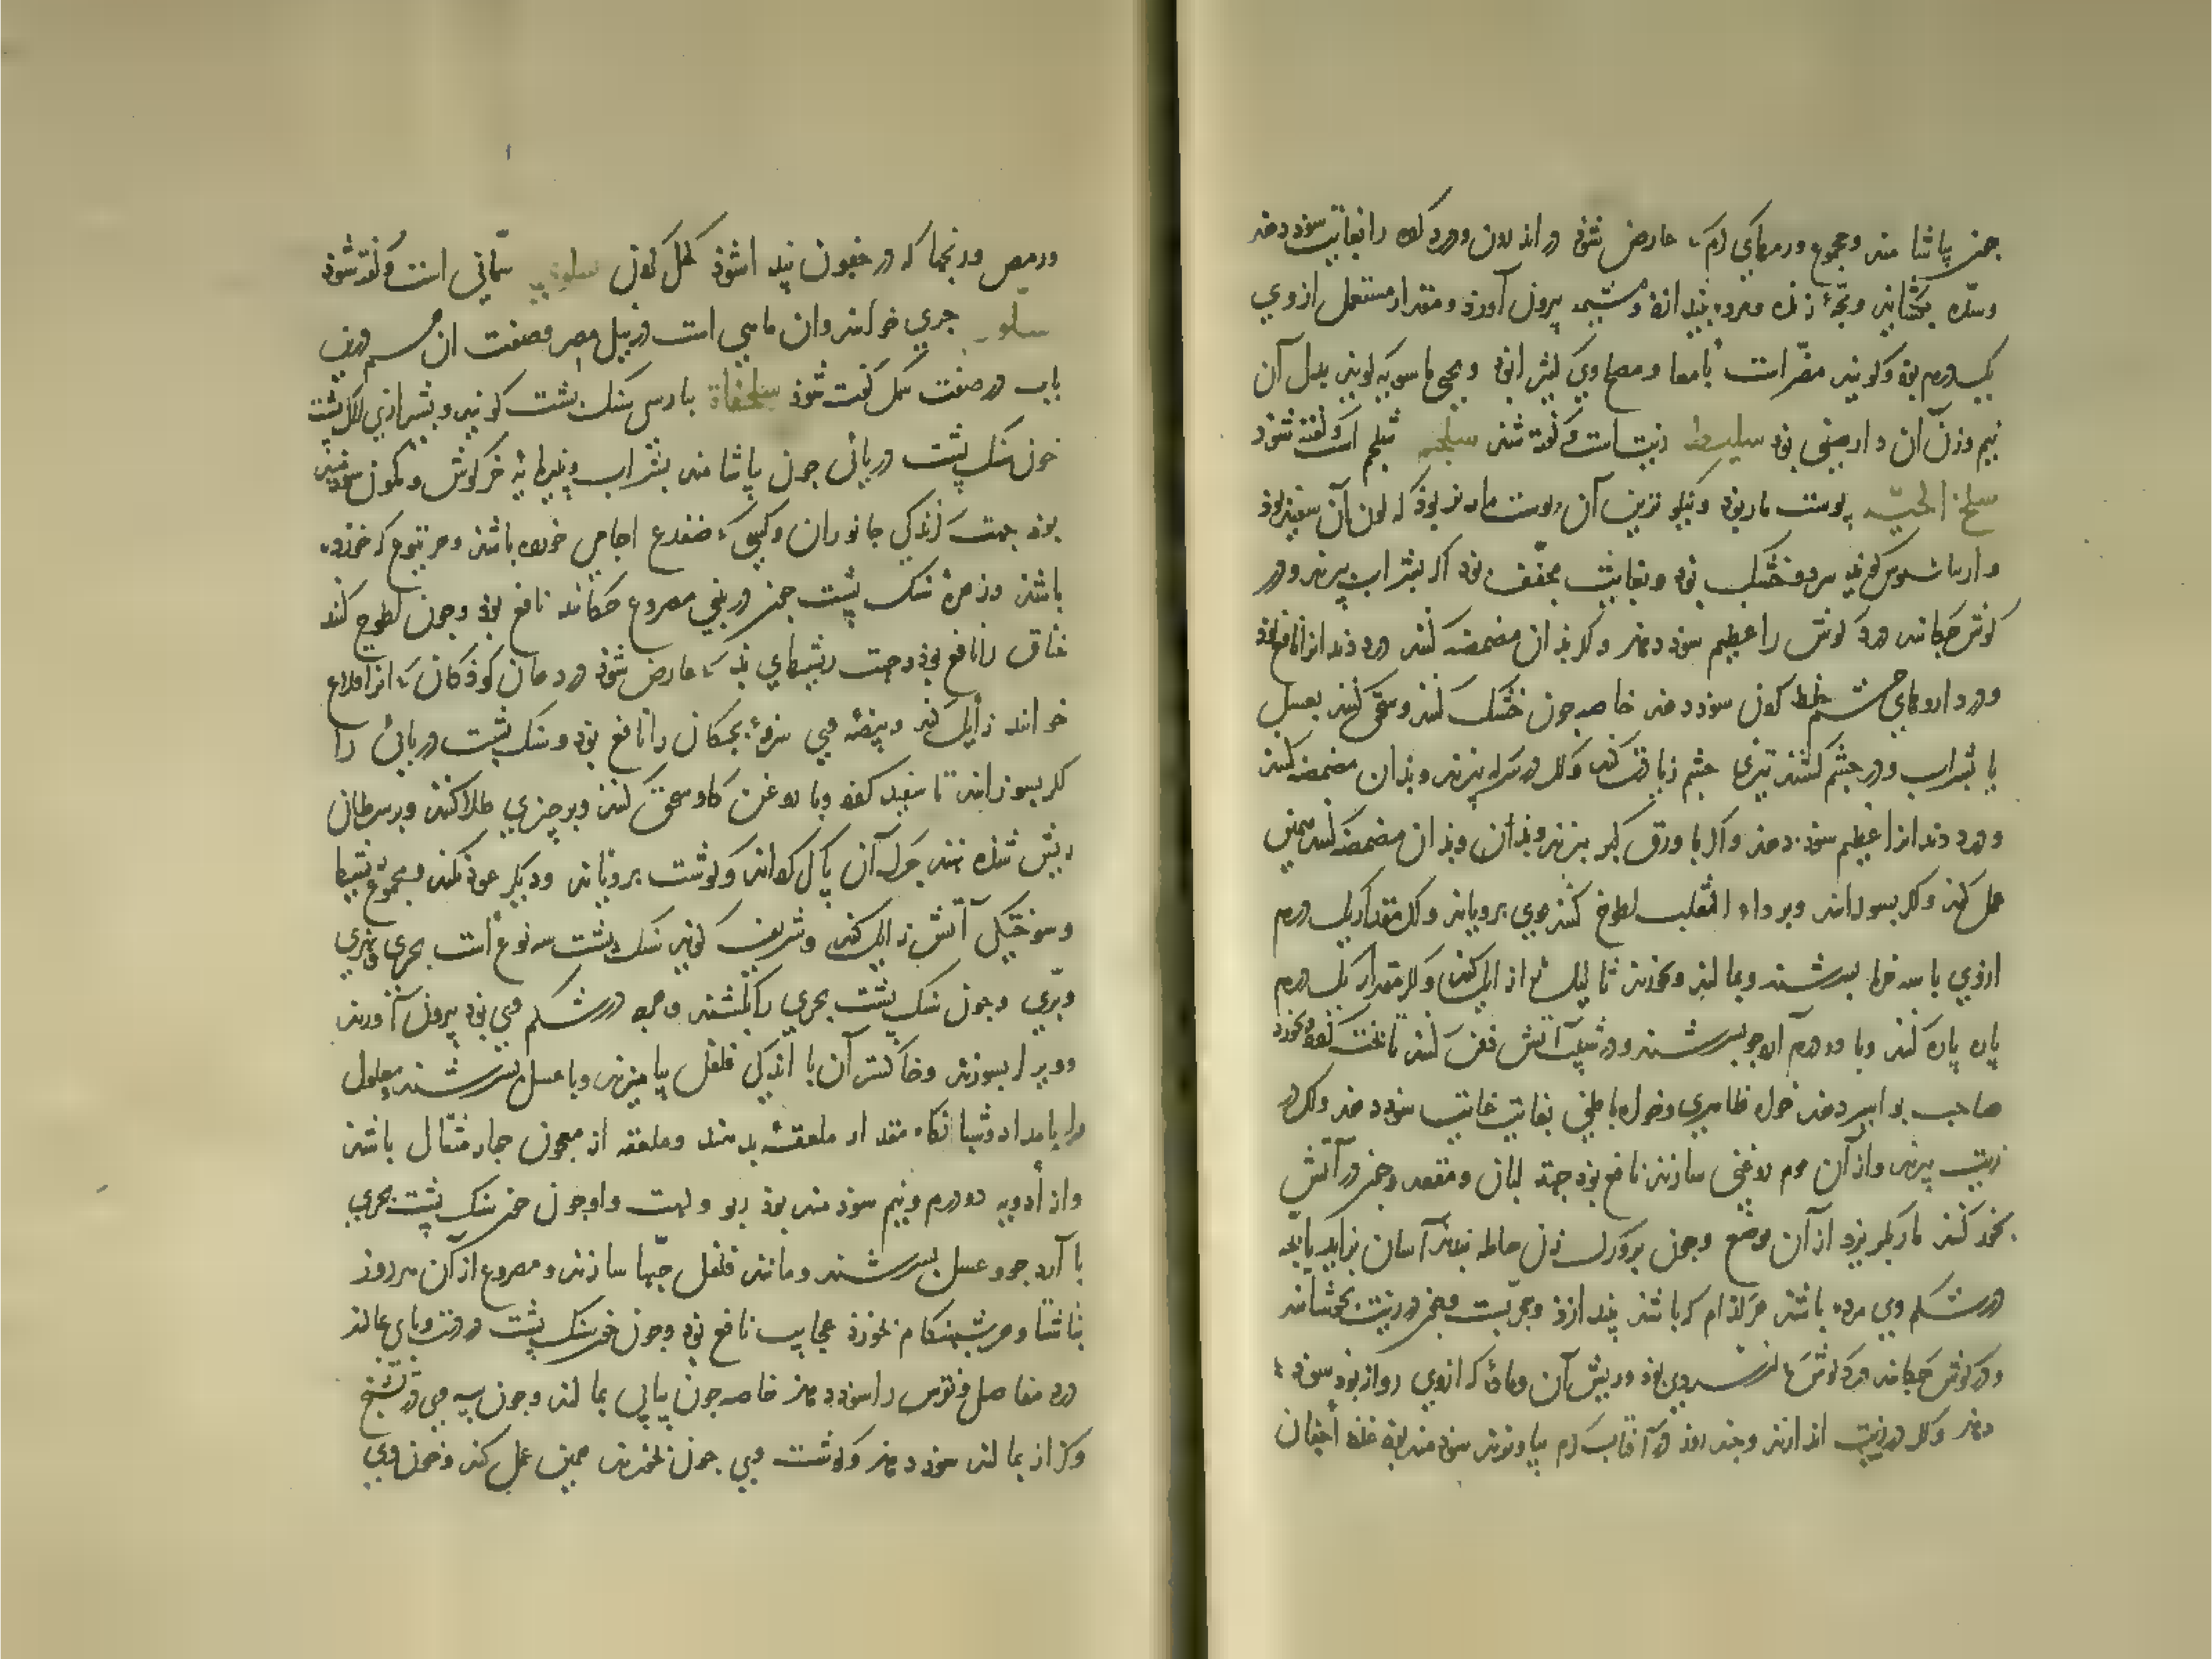 چون بیاشامند و مجموع ورمهای گرم که عارض شود در اندرون و درد گرده را بغایت سود دهد
و سده بکشاید و بچهٔ زنده و مرده بیندازد و مشیمه بیرون آورد و مقدار مستعمل از وی
یک درم بود و گویند مضر است بامعا و مصلح وی کثیرا بود و یحیی ماسویه گوید بدل آن
نیم وزن آن دارچینی بود سلیط زیت است و گفته شد سلجم شلجم است و گفته شود
سلخ الحیه پوست مار بود و نیکوترین آن پوست مار نر بود که لون آن سفید بود
گویند سرد و خشک بود و بغایت مجفف بود اگر بشراب بپزند و در
گوش چکانند درد گوش را عظیم سود دهد و اگر بدان مضمضه کنند درد دندان را نافع بود
و در داروهای چشم خلط کردن سود دهد خاصه چون خشک کنند و سحق کنند بعسل
یا بشراب و در چشم کشند تیزی چشم زیادت کند و اگر در سرکه بپزند و بدان مضمضه کنند
درد دندان را عظیم سود دهد و اگر با ورق کبر بپزند و بدان مضمضه کنند همین
عمل کند و اگر بسوزانند و بر داء الثعلب لطوخ کنند موی برویاند و اگر مقدار یک درم
از وی با سه خرما بسرشند و بمالند و بخورند ثآلیل را زایل کند و اگر مقدار یک درم
پاره پاره کنند و با دو درم آرد جو بسرشند و در شیب آتش دفن کنند تا پخته گردد و بخورد
صاحب بواسیر دهند خواه ظاهری و خواه باطنی بغایت غایت سود دهد و اگر در
زیت بپزند و از آن موم روغنی سازند نافع بود جهت لبان و مقعد و چون در آتش
بخور کنند مار بگریزد از آن موضع و چون بر ورک زن حامله بندند آسان بزاید یا بچه
در شکم وی مرده باشد هر کدام که باشد بیندازد و مجربست و چون در زیت بجوشانند
و در گوش چکانند درد گوش که از سردی بود و ریش آن و ماده که از وی روانه بود سود
دهد و اگر در زیت اندازند و چند روز در آفتاب گرم بیاویزند سودمند بود غلظ اجفان
و رمص و رنجها که در جفون پیدا شود کحل کردن سلوی سمانی است و گفته شود
سلور جری خوانند و آن ماهی است در نیل مصر و صفت آن هم درین
باب در صفت سمک گفته شود سلحفاة بپارسی سنگ پشت گویند و بشیرازی لاک پشت
خون سنگ پشت دریائی چون بیاشامند بشراب و پنیرمایه خرگوش و کمون سودمند
بود جهت گزندگی جانوران و کسی که ضفدع اجامی خورده باشد و هر یتوع که خورده
باشد و زهرهٔ سنگ پشت چون در بینی مصروع چکانند نافع بود و چون لطوخ کنند
خناق را نافع بود و جهت ریشهای بد که عارض شود در دهان کودکان که آنرا قلاع
خوانند زایل کند و بیضه وی سرفهٔ بچگان را نافع بود و سنگ پشت دریائی را
اگر بسوزانند تا سفید گردد و با روغن گاو سحق کنند و بر چیزی طلا کنند و بر سرطان
ریش شده نهند چرک آن پاک گرداند و گوشت برویاند و دیگر عود نکند و مجموع ریشها
و سوختگی آتش زایل کند و شریف گوید سنگ پشت سه نوع است بحری و نهری
و بری و چون سنگ پشت بحری را بکشند و هرچه در شکم وی بود بیرون آورند
و ویرا بسوزند و خاکستر آن با اندکی فلفل بیامیزند و با عسل بسرشند مسلول
را بامداد و شبانگاه مقدار ملعقه بدهند و ملعقه از معجون چهار مثقال باشد
و از ادویه دو درم و نیم سودمند بود ربو و لهث را و چون خون سنگ پشت بحری
با آرد جو و عسل بسرشند و مانند فلفل حبها سازند و مصروع از آن هر روز
ناشتا و هر شبهنگام بخورد عجایب نافع بود و چون خون سنگ پشت در دست و پای مالند
درد مفاصل و نقرس را سود دهد خاصه چون پیاپی بمالند و چون پیه وی در تشنج
و کزاز بمالند سود دهد و گوشت وی چون بخورند همین عمل کند و خون وی